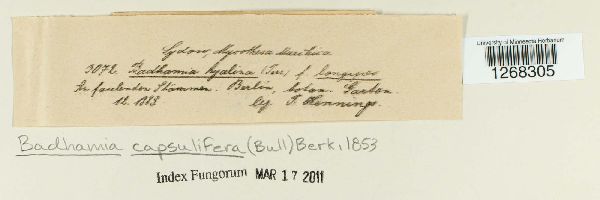 Sydow, Mycotheca Marchica
3072. Badhamia hyalina (Pers) f. longipes
An faulenden Stämmen. Berlin, botan. Garten.
12. 1883 leg. P. Hennings.
University of Minnesota Herbarium
1268305
Badhamia capsulifera (Bull) Berk, 1853
Index Fungorum MAR 17 2011